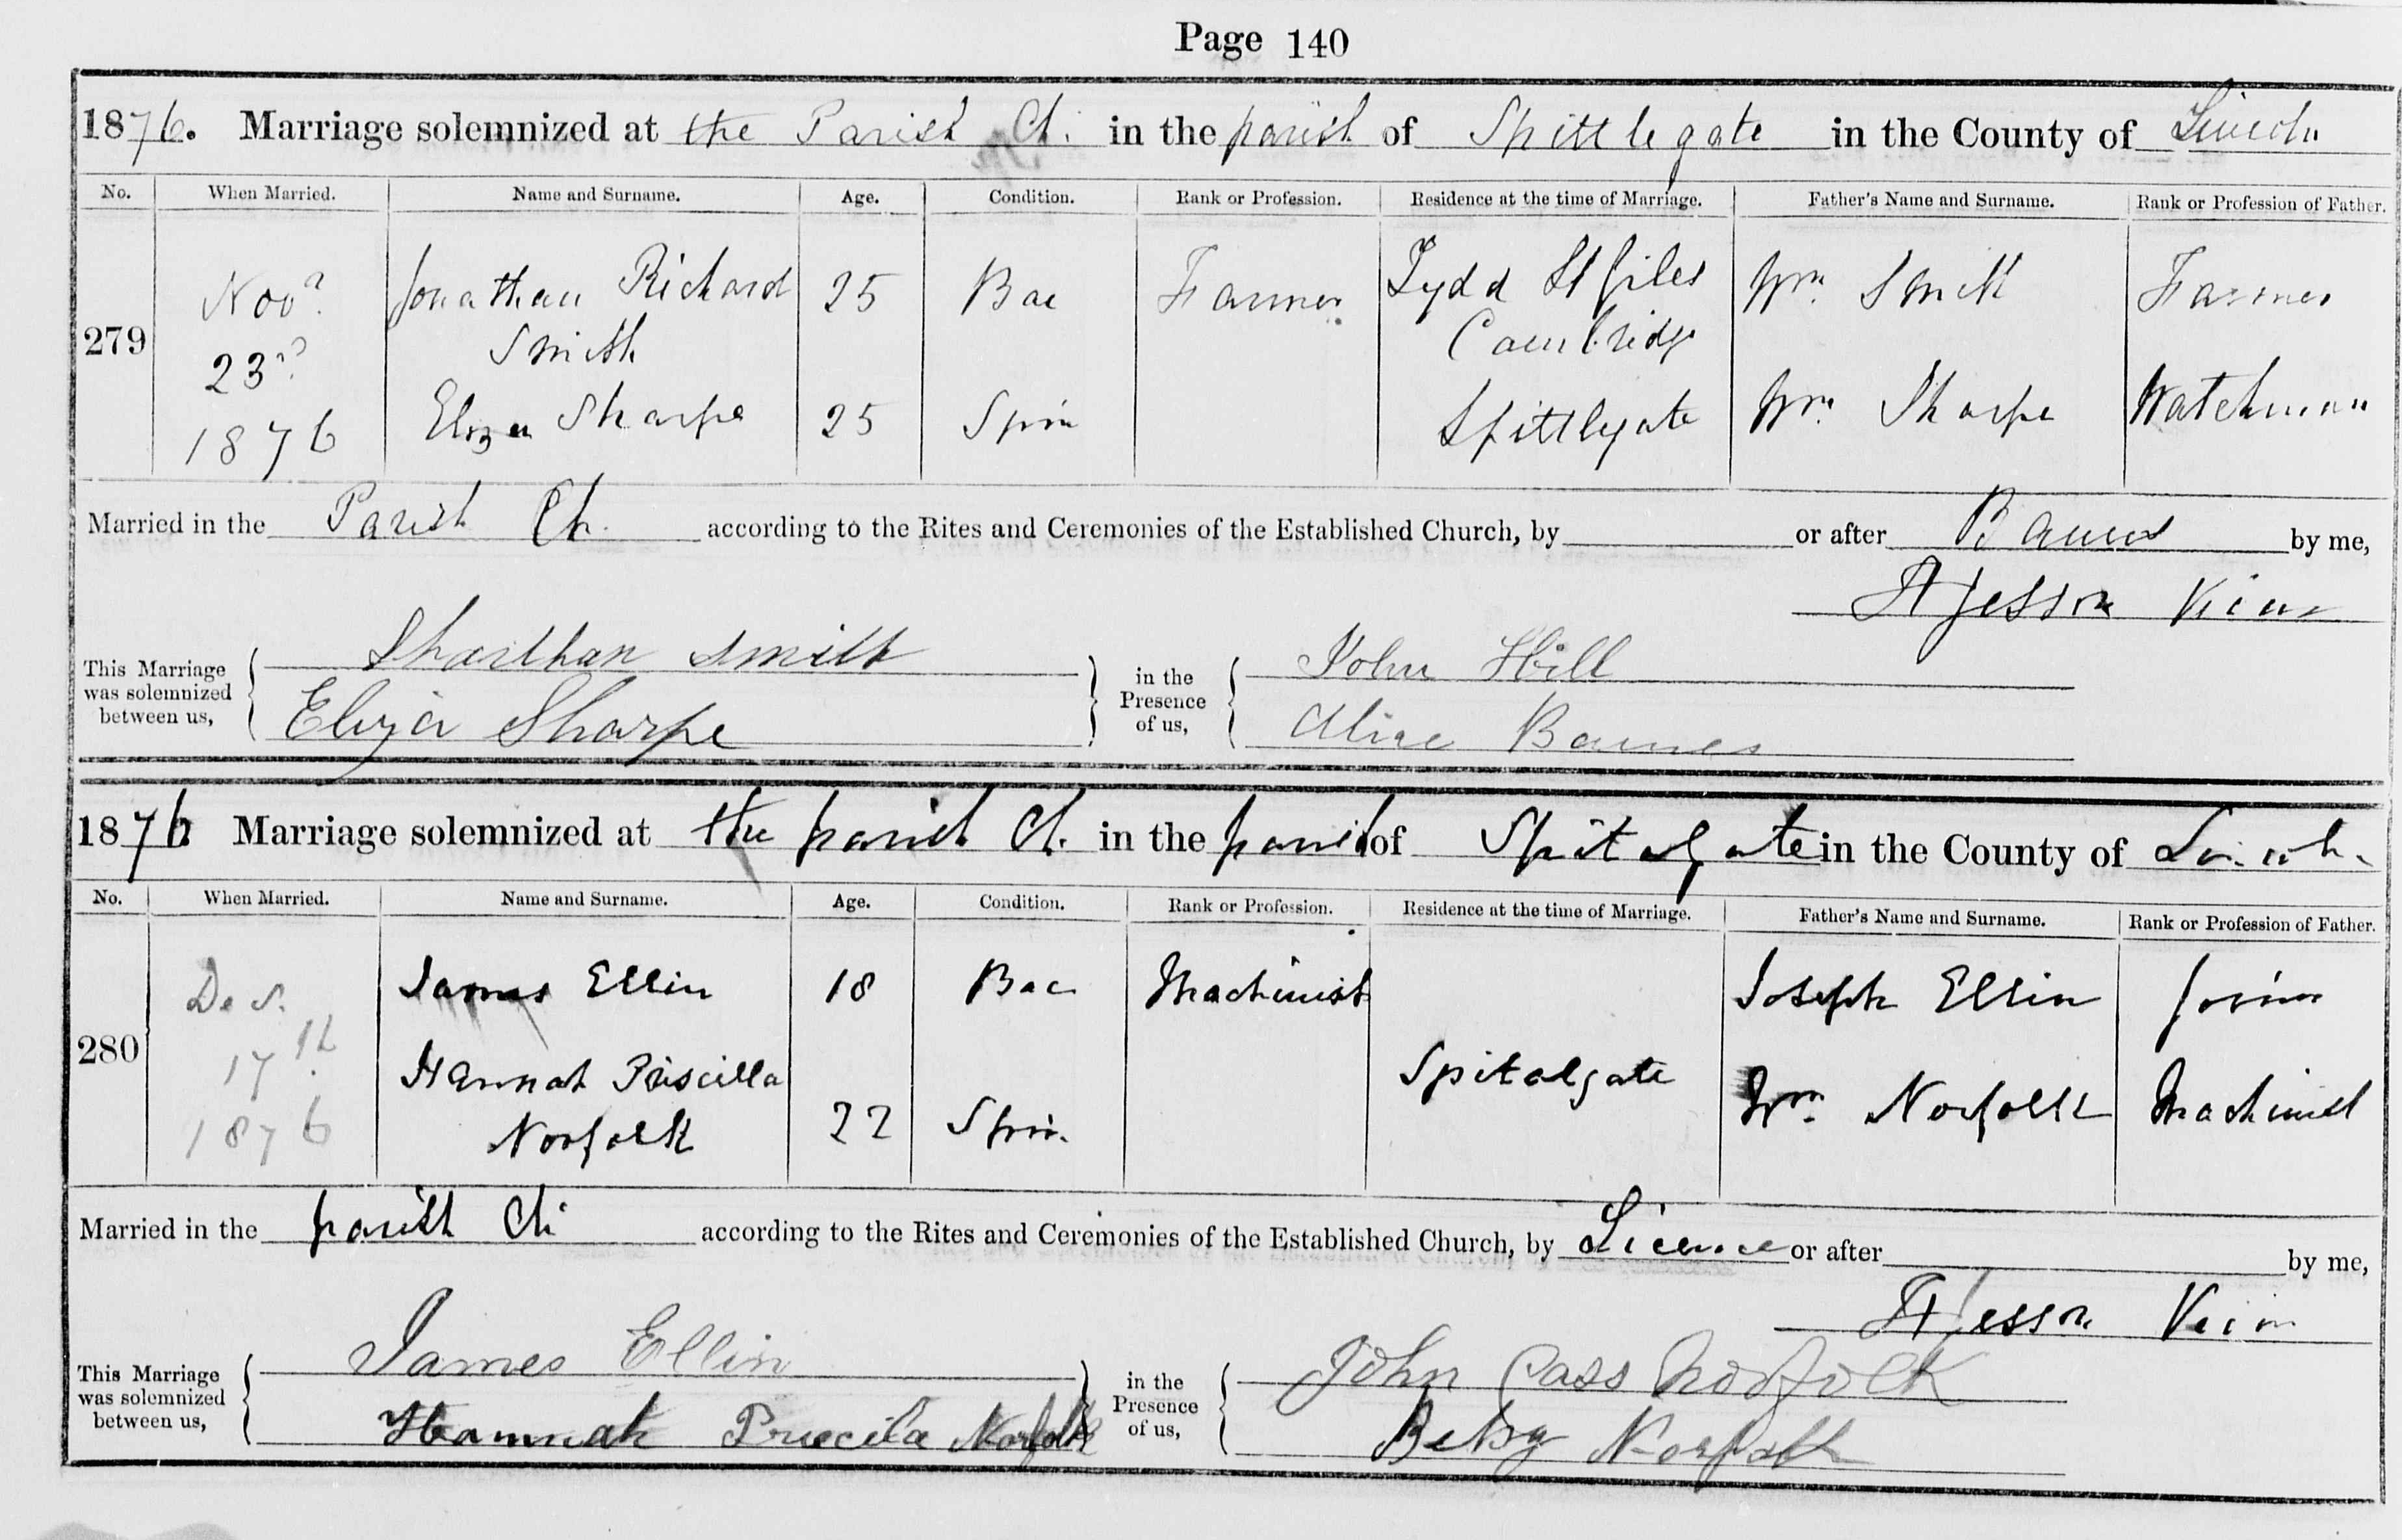 Page 140
1876. Marriage solemnized at the Parish Ch. in the parish of Spittlegate in the County of Lincoln
No. When Married. Name and Surname. Age. Condition. Rank or Profession. Residence at the time of Marriage. Father's Name and Surname. Rank or Profession of Father.
Novr. Jonathan Richard 25 Bac Farmer Tydd St Giles Wm. Smith Farmer
279 23rd Smith Cambridge
1876 Eliza Sharpe 25 Spin Spittlegate Wm. Sharpe Watchman
Married in the Parish Ch. according to the Rites and Ceremonies of the Established Church, by or after Banns by me,
Jesson Vicar
This Marriage was solemnized between us, Smith in the Presence of us, John Hill
Eliza Sharpe Alice Barnes
1876 Marriage solemnized at the parish Ch. in the parish of Spitalgate in the County of Lincoln
No. When Married. Name and Surname. Age. Condition. Rank or Profession. Residence at the time of Marriage. Father's Name and Surname. Rank or Profession of Father.
James Ellin 18 Bac Machinist Joseph Ellin Joiner
280 17th Hannah Priscilla Spitalgate
1876 Norfolk 22 Spin. Wm. Norfolk Machinist
Married in the parish Ch. according to the Rites and Ceremonies of the Established Church, by Licence or after by me,
Jesson Vicar
This Marriage was solemnized between us, James Ellin in the Presence of us, John Cass Norfolk
Hannah Norfolk Betsy Norfolk